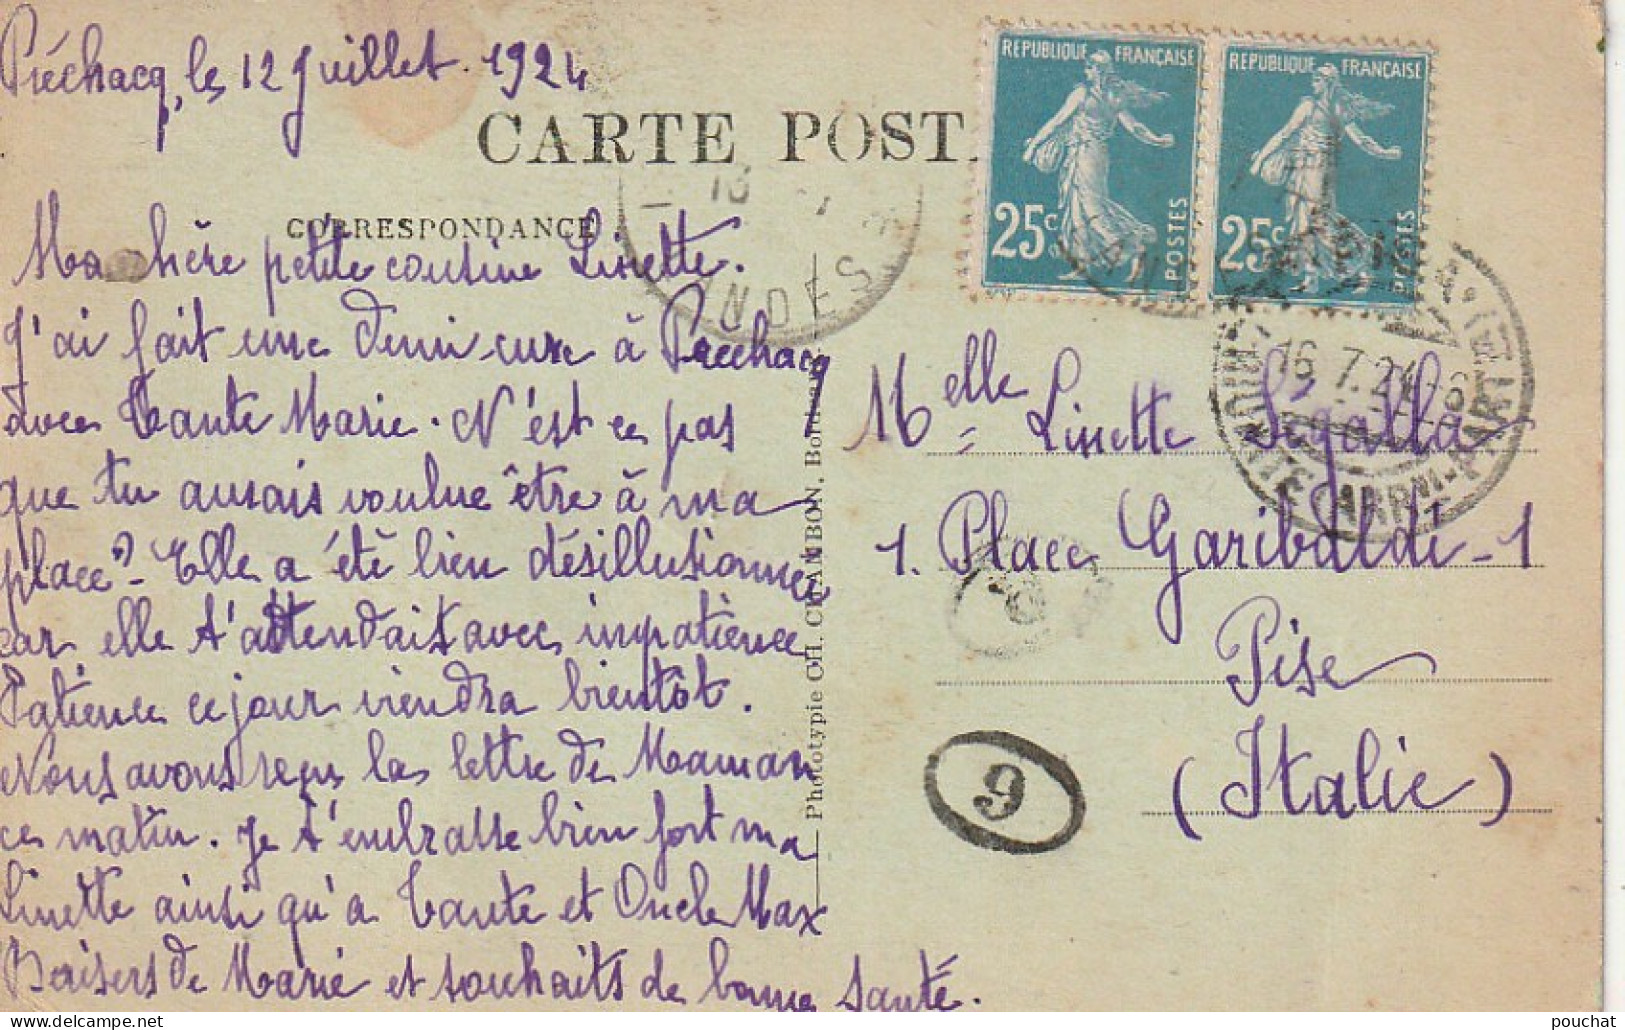 Préchacq, les 12 Juillet. 1924
CARTE POST
CORRESPONDANCE
Ma chère petite cousine Linette.
J'ai fait une demi cure à Préchacq
avec Tante Marie. N'est ce pas
que tu aurais voulue être à ma
place? - Elle a été bien désillusionnée
car elle t'attendait avec impatience
Patience ce jour viendra bientôt.
Nous avons reçu la lettre de Maman
ce matin. Je t'embrasse bien fort ma
Linette ainsi qu'à Tante et Oncle Max
Baisers de Marie et souhaits de bonne santé.
Phototypie CH. CHAMBON, Bordeaux
REPUBLIQUE FRANÇAISE
25c
POSTES
REPUBLIQUE FRANÇAISE
25c
POSTES
LANDES
16.7.24
Melle Linette Ségalla
1. Place Garibaldi - 1
Pise
(Italie)
9
pouchat